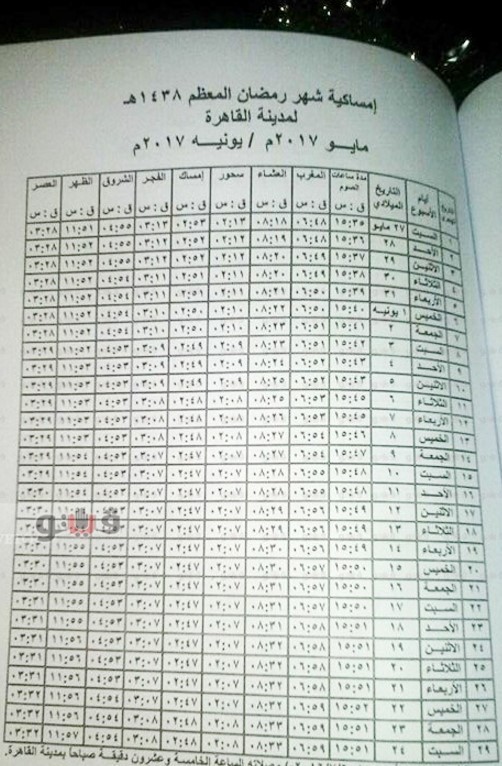 إمساكية شهر رمضان المعظم ١٤٣٨هـ
لمدينة القاهرة
مايـو ٢٠١٧م / يونيـه ٢٠١٧م
أيام الأسبوع التاريخ الميلادي مدة ساعات الصوم المغرب العشاء سحور إمساك الفجر الشروق الظهر العصر
ق : س ق : س ق : س ق : س ق : س ق : س ق : س ق : س ق : س
١ السبت ٢٧ مايو ١٥:٣٥ ٠٦:٤٨ ٠٨:١٨ ٠٢:١٣ ٠٢:٥٣ ٠٣:١٣ ٠٤:٥٥ ١١:٥١ ٠٣:٢٨
٢ الأحد ٢٨ ١٥:٣٦ ٠٦:٤٨ ٠٨:١٩ ٠٢:١٢ ٠٢:٥٢ ٠٣:١٢ ٠٤:٥٥ ١١:٥٢ ٠٣:٢٨
٣ الاثنين ٢٩ ١٥:٣٧ ٠٦:٤٩ ٠٨:٢٠ ٠٢:١٢ ٠٢:٥٢ ٠٣:١٢ ٠٤:٥٥ ١١:٥٢ ٠٣:٢٨
٤ الثلاثاء ٣٠ ١٥:٣٨ ٠٦:٤٩ ٠٨:٢٠ ٠٢:١١ ٠٢:٥١ ٠٣:١١ ٠٤:٥٥ ١١:٥٢ ٠٣:٢٨
٥ الأربعاء ٣١ ١٥:٣٩ ٠٦:٥٠ ٠٨:٢١ ٠٢:١١ ٠٢:٥١ ٠٣:١١ ٠٤:٥٤ ١١:٥٢ ٠٣:٢٨
٦ الخميس ١ يونيه ١٥:٤٠ ٠٦:٥٠ ٠٨:٢٢ ٠٢:١٠ ٠٢:٥٠ ٠٣:١٠ ٠٤:٥٤ ١١:٥٢ ٠٣:٢٨
٧ الجمعة ٢ ١٥:٤١ ٠٦:٥١ ٠٨:٢٣ ٠٢:١٠ ٠٢:٥٠ ٠٣:١٠ ٠٤:٥٤ ١١:٥٢ ٠٣:٢٨
٨ السبت ٣ ١٥:٤٢ ٠٦:٥١ ٠٨:٢٣ ٠٢:٠٩ ٠٢:٤٩ ٠٣:٠٩ ٠٤:٥٣ ١١:٥٢ ٠٣:٢٩
٩ الأحد ٤ ١٥:٤٣ ٠٦:٥٢ ٠٨:٢٤ ٠٢:٠٩ ٠٢:٤٩ ٠٣:٠٩ ٠٤:٥٣ ١١:٥٣ ٠٣:٢٩
١٠ الاثنين ٥ ١٥:٤٣ ٠٦:٥٢ ٠٨:٢٥ ٠٢:٠٩ ٠٢:٤٩ ٠٣:٠٩ ٠٤:٥٣ ١١:٥٣ ٠٣:٢٩
١١ الثلاثاء ٦ ١٥:٤٥ ٠٦:٥٣ ٠٨:٢٥ ٠٢:٠٨ ٠٢:٤٨ ٠٣:٠٨ ٠٤:٥٣ ١١:٥٣ ٠٣:٢٩
١٢ الأربعاء ٧ ١٥:٤٥ ٠٦:٥٣ ٠٨:٢٦ ٠٢:٠٨ ٠٢:٤٨ ٠٣:٠٨ ٠٤:٥٣ ١١:٥٣ ٠٣:٢٩
١٣ الخميس ٨ ١٥:٤٦ ٠٦:٥٤ ٠٨:٢٧ ٠٢:٠٨ ٠٢:٤٨ ٠٣:٠٨ ٠٤:٥٣ ١١:٥٣ ٠٣:٢٩
١٤ الجمعة ٩ ١٥:٤٧ ٠٦:٥٤ ٠٨:٢٧ ٠٢:٠٧ ٠٢:٤٧ ٠٣:٠٧ ٠٤:٥٣ ١١:٥٤ ٠٣:٢٩
١٥ السبت ١٠ ١٥:٤٨ ٠٦:٥٥ ٠٨:٢٨ ٠٢:٠٧ ٠٢:٤٧ ٠٣:٠٧ ٠٤:٥٣ ١١:٥٤ ٠٣:٢٩
١٦ الأحد ١١ ١٥:٤٨ ٠٦:٥٥ ٠٨:٢٨ ٠٢:٠٧ ٠٢:٤٧ ٠٣:٠٧ ٠٤:٥٣ ١١:٥٤ ٠٣:٣٠
١٧ الاثنين ١٢ ١٥:٤٩ ٠٦:٥٦ ٠٨:٢٩ ٠٢:٠٧ ٠٢:٤٧ ٠٣:٠٧
١٨ الثلاثاء ١٣ ١٥:٤٩ ٠٦:٥٦ ٠٨:٢٩ ٠٢:٠٧ ٠٢:٤٧ ٠٣:٠٧
١٩ الأربعاء ١٤ ١٥:٤٩ ٠٦:٥٦ ٠٨:٣٠ ٠٢:٠٧ ٠٢:٤٧ ٠٣:٠٧ ٠٤:٥٣ ١١:٥٥ ٠٣:٣٠
٢٠ الخميس ١٥ ١٥:٥٠ ٠٢:٠٧ ٠٢:٤٧ ٠٣:٠٧ ٠٤:٥٣ ١١:٥٥ ٠٣:٣٠
٢١ الجمعة ١٦ ١٥:٥٠ ٠٦:٥٧ ٠٢:٠٧ ٠٢:٤٧ ٠٣:٠٧ ٠٤:٥٣ ١١:٥٥ ٠٣:٣١
٢٢ السبت ١٧ ١٥:٥٠ ٠٦:٥٧ ٠٨:٣١ ٠٢:٠٧ ٠٢:٤٧ ٠٣:٠٧ ٠٤:٥٣ ١١:٥٥ ٠٣:٣١
٢٣ الأحد ١٨ ١٥:٥١ ٠٨:٣١ ٠٢:٠٧ ٠٢:٤٧ ٠٣:٠٧ ٠٤:٥٣ ٠٣:٣١
٢٤ الاثنين ١٩ ١٥:٥١ ٠٦:٥٨ ٠٢:٠٧ ٠٢:٤٧ ٠٣:٠٧ ٠٤:٥٣ ١١:٥٦ ٠٣:٣١
٢٥ الثلاثاء ٢٠ ١٥:٥١ ٠٦:٥٨ ٠٨:٣٢ ٠٢:٠٧ ٠٢:٤٧ ٠٣:٠٧ ٠٤:٥٣ ١١:٥٦ ٠٣:٣١
٢٦ الأربعاء ٢١ ١٥:٥١ ٠٦:٥٨ ٠٨:٣٢ ٠٢:٠٧ ٠٢:٤٧ ٠٣:٠٧ ٠٤:٥٣ ١١:٥٦ ٠٣:٣٢
٢٧ الخميس ٢٢ ١٥:٥١ ٠٦:٥٨ ٠٨:٣٢ ٠٢:٠٧ ٠٢:٤٧ ٠٣:٠٧ ٠٤:٥٤ ١١:٥٦ ٠٣:٣٢
٢٨ الجمعة ٢٣ ١٥:٥١ ٠٦:٥٩ ٠٨:٣٣ ٠٢:٠٨ ٠٢:٤٨ ٠٣:٠٨ ٠٤:٥٤ ١١:٥٦ ٠٣:٣٢
٢٩ السبت ٢٤ ١٥:٥١ ٠٦:٥٩ ٠٨:٣٣ ٠٢:٠٨ ٠٢:٤٨ ٠٣:٠٨ ٠٤:٥٤ ١١:٥٧ ٠٣:٣٢
الساعة الخامسة وعشرون دقيقة صباحاً بمدينة القاهرة.